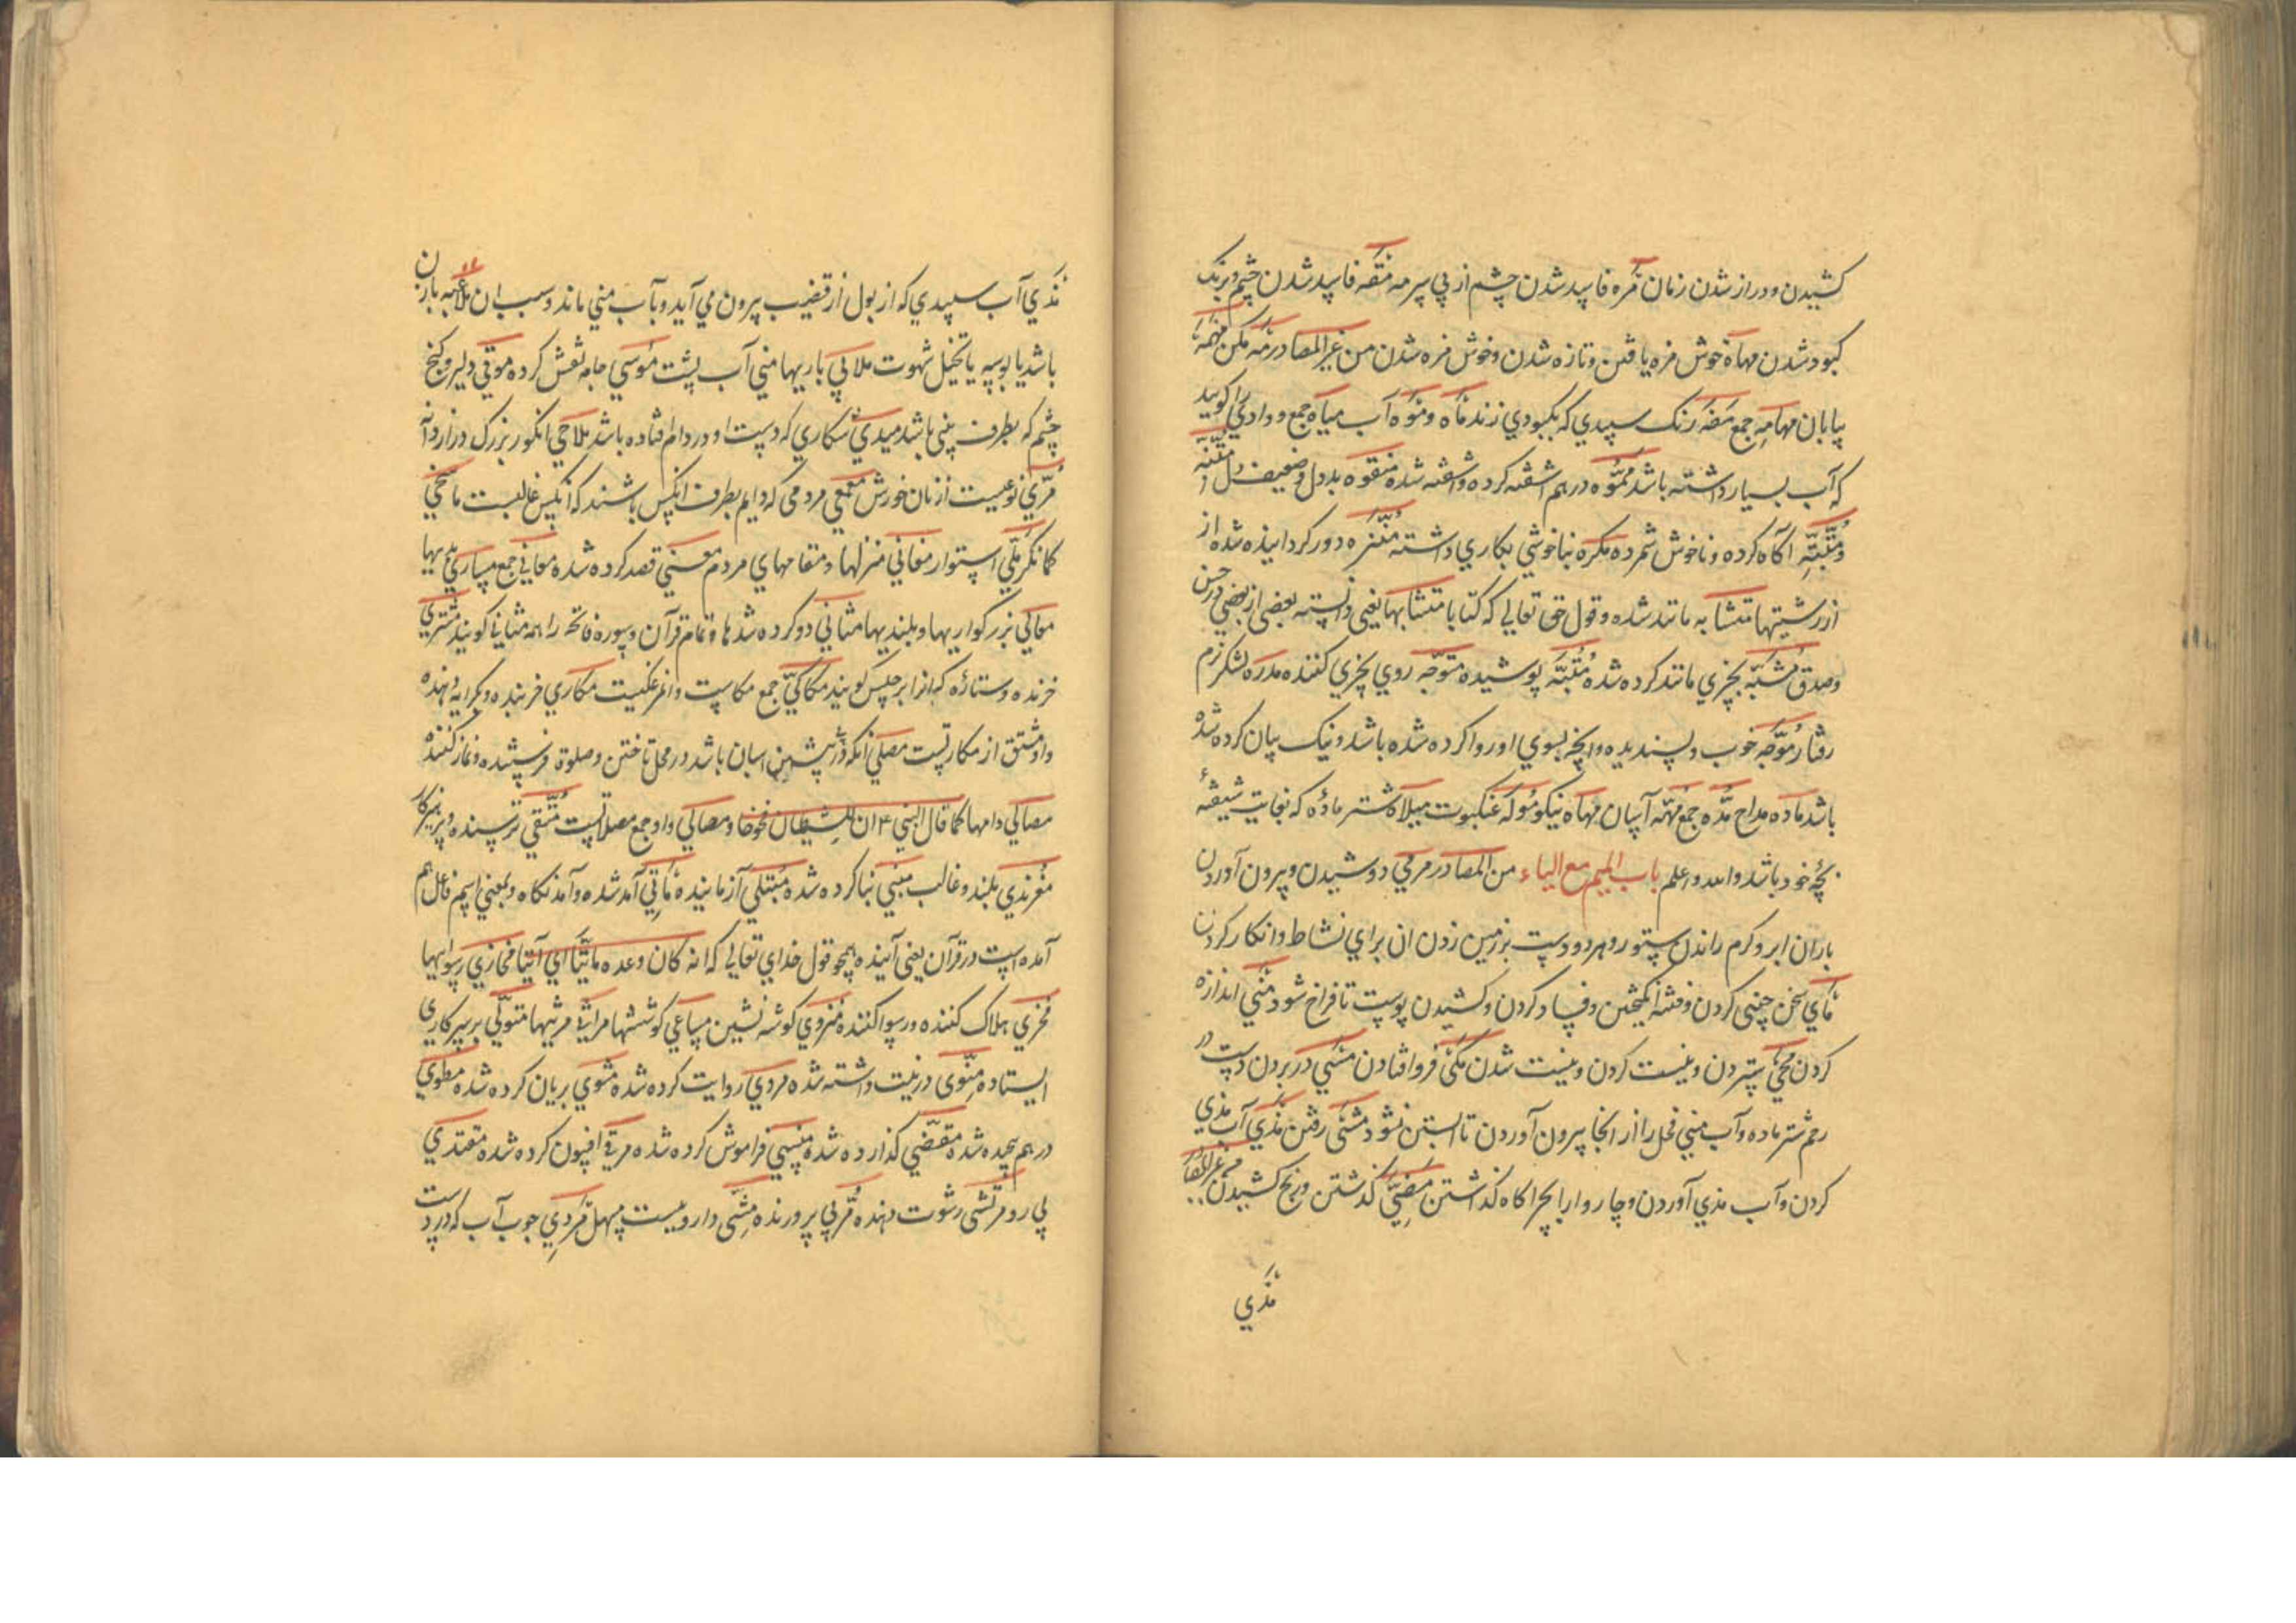 کشیدن و دراز شدن زمان مَرَه فاسد شدن چشم از بی سرمه مَقَه فاسد شدن چشم و برنک
کبود شدن مهاة خوش فره یافتن و تازه شدن و خوش فره شدن من غیر المصادر مَه مکن مَهْمَه
بیابان مهامِه جمع مَقَه رنک سپیدی که بکبودی زند مَاه و مَوَه آب میاه جمع و وادی را کویند
که آب بسیار داشته باشد مُمَوَّه درهم آشفته کرده و آشفته شده منقوه بددل و ضعیف دل
و مُنَبِّه آکاه کرده و ناخوش شمرده مکره بناخوشی بکاری داشته مُنَزَّه دور کردانیده شده از
از زشتیها متشابه مانند شده و قول حق تعالی که کتابا متشابها یعنی دانسته بعضی از بعضی در حسن
و صدق مُشَبَّه بچیزی مانند کرده شده پوشیده متوجّه روی بچیزی کننده مدره لشکر نرم
رفتار مُوَجَّه خوب و پسندیده و آنچه بسوی او روا کرده شده باشد و نیک بیان کرده شده
باشد مَاده مداح مُدَّه جمع آسان مهاه نیکو مُولَه عنکبوت میلاه شتر مادهٔ که بغایت شیفتهٔ
بچهٔ خود باشد والله و اعلم باب المیم مع الیاء من المصادر مرمی دوشیدن و بیرون آوردن
باران ابر و کرم راندن ستور و هر دو دست بر زمین زدن آن برای نشاط و انکار کردن
مَأی سخن چینی کردن و فتنه انکیختن و فساد کردن و کشیدن پوست تا فراخ شود مَنْی اندازه
کردن مَحْی ستردن و نیست کردن و نیست شدن مَکْی فرو افتادن مَسْی در بردن دست در
رحم شتر ماده و آب منی فحل را از آنجا بیرون آوردن تا آبستن نشود مَشْی رفتن مَذی آب مذی
کردن و آب مذی آوردن و چاروا را بچراکاه کذاشتن مُضِیّ کذشتن و رنج کشیدن من غیر المصا
مَذی
مَذی آب سپیدی که از بول از قضیب بیرون می آید و بآب منی ماند و سبب آن ملاعبه بازن
باشد یا بوسه یا تخیل شهوت ملاهی بازیها منی آب پشت مُوسی جامه نقش کرده موقی دلیر و کنج
چشم که بطرف بینی باشد میدی شکاری که دست او در دام افتاده باشد ملاحی انکور بزرک دراز دانه
مُرّی نوعیست از نان خورش مَعْمَعی مردمی که دایم بطرف آنکس باشند که آنکس غالبست ماسخی
کمانکر مَلّی استوار مغانی منزلها و مقامهای مردم معنی قصد کرده شده معانی جمع مساوی بدیها
معالی بزرکواریها و بلندیها مثانی دو کرده شدها و تمام قرآن و سوره فاتحه را همه مثانی کویند مشتری
خرنده و ستارهٔ که آنرا برجیس کویند مکاکی جمع مکاست و آن مرغکیست مکاری خربنده و بکرایه دهنده
و او مشتق از مکارتست مصلی آنکه در پیشین اسپان باشد در محل تاختن و صلوة فرستنده و نماز کننده
مصالی دامها کما قال النبی ۴ ان للشیطان فخوخا و مصالی و او جمع مصلاتست مُتَّقی ترسنده و پرهیزکار
مُغْرَندی بلند و غالب مبنی بنا کرده شده مُبتلی آزماینده مَأتی آمد شده و آمدنکاه و بمعنی اسم فاعل هم
آمده است در قرآن یعنی آینده همچو قول خدای تعالی که انه کان وعده مأتیّا ای آتیا مخازی رسواییها
مُخزی هلاک کننده و رسوا کننده منزوی کوشه نشین مساعی کوششها مراثی مرثیها متولّی برسر کاری
ایستاده مَنْوی در نیت داشته شده مروی روایت کرده شده مشوی بریان کرده شده مطوی
درهم پیچیده شده مقضی کذارده شده منسی فراموش کرده شده مرقی افسون کرده شده مقتدی
پی رو مرتشی رشوت دهنده مُرَبّی پرورنده مَشِیّ داروییست مسهل مُردی چوب آب که در دست